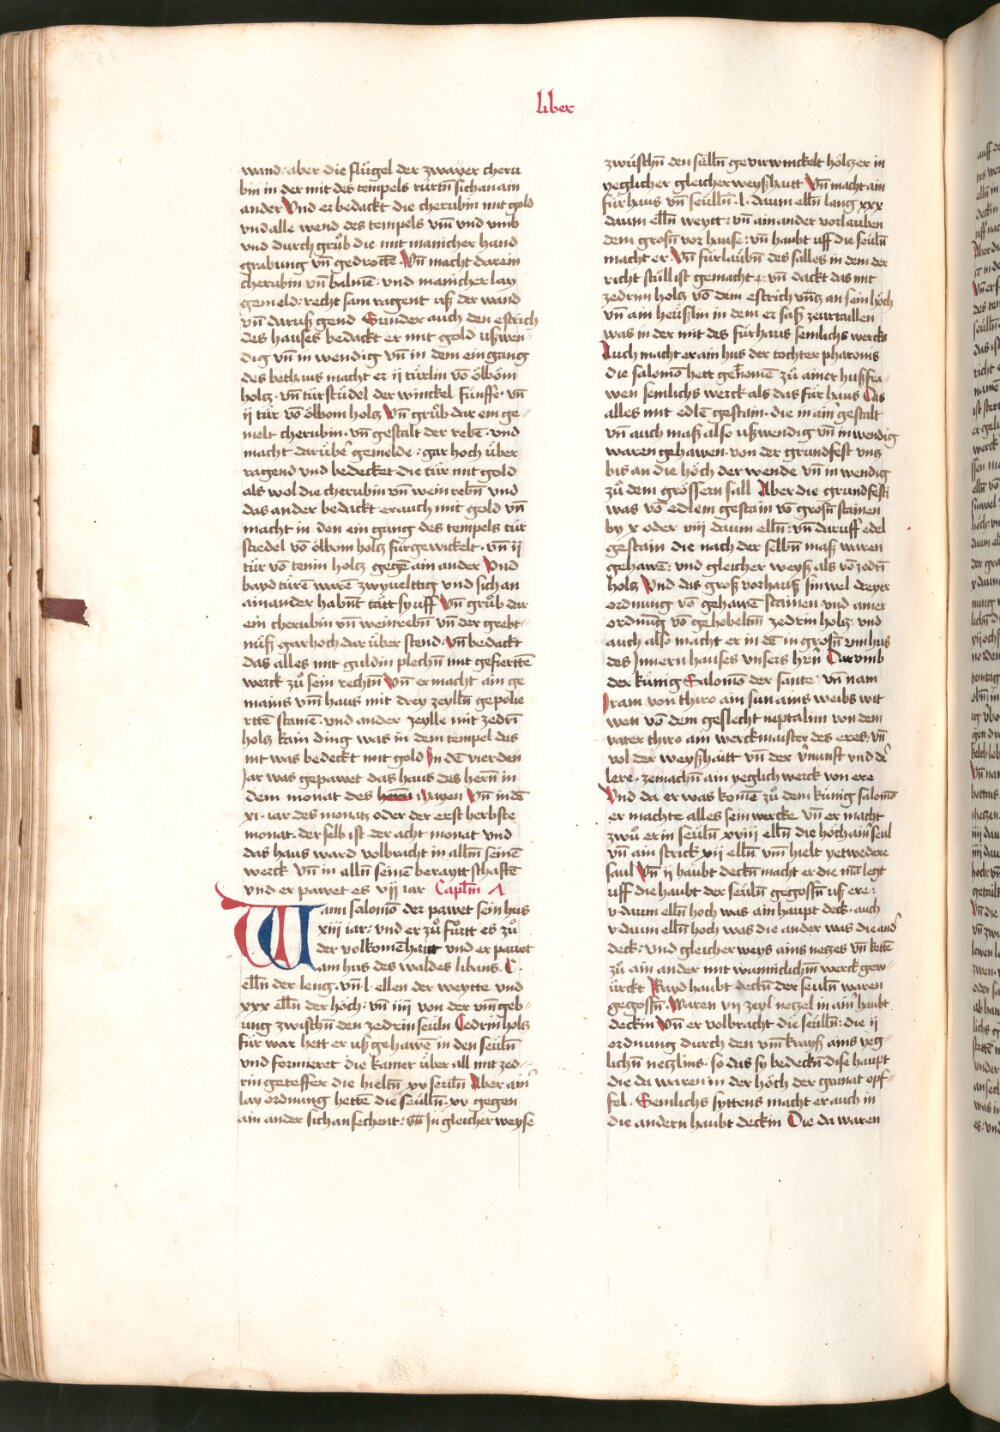 liber
wand: aber die flúgel der zwayer cheru
bin in der mit des tempels rúrtn̄ sich an ain
ander Vnd er bedackt die cherubin mit gold
vnd alle wend des tempels vm̄ vnd vmb
vnd durch grůb die mit manicher hand
grabung vn̄ gedrottē. Vn̄ macht darein
cherubin vn̄ balmē: vnd manicher lay
gemeld: recht sam ragent uſz der wand
vn̄ daruſz gend Sunder auch den estrich
des hauses bedackt er mit gold uſzwen-
dig vn̄ in wendig vn̄ in dem ein gang
des bethaus macht er ij túrlin vō ölböm
holcz. vn̄ túrstúdel der winckel fúnffe. vn̄
ij túr vō ölbom holcz Vn̄ grůb dar ein ge-
melt cherubin. vn̄ gestalt der rebē. vnd
macht darúber gemelde: gar hoch úber
ragend vnd bedecket die túr mit gold
als wol die cherubin vn̄ wein rebn̄ vnd
das ander bedackt er auch mit gold vn̄
macht in den ein gang des tempels túr
studel vō ölbom holcz fúrgewickelt. vn̄ ij
túr vō tenin holcz gegē ain ander Vnd
bayd túrē warē zwyueltig vnd sich an
ainander habn̄t tátt sy uff Vn̄ grůb dar
ein cherubin vn̄ weinrebn̄ vn̄ der grebt-
núſz gar hoch dar úber stend: vn̄ bedackt
das alles mit guldin plechn̄ mit gefierttē
werck zů sein rechtn̄ Vn̄ er macht ain ge
mains vm̄ haus mit drey zeylln̄ gepolie
rttē stainē. vnd ander zeylle mit zedrī
holcz kain ding was in dem tempel das
nit was bedeckt mit gold In dē vierden
Jar was gepawet das haus des hern̄ in
dem monat des hern̄ Mayen Vn̄ in dē
xi. iar des monatz oder der erst herbste
monat. der selb ist der acht monat vnd
das haus ward volbracht in alln̄ seinē
werck vn̄ in alln̄ seinē beraytschafftē
vnd er pawet es vij iar Capl̄m
Wann salomō der pawet sein hus
xiij iar: vnd er zů fúrtt es zů
der volkomēhaitt vnd er pawet
ain hus des waldes libans. C.
elln̄ der leng. vn̄. l. ellen der weytte vnd
xxx elln̄ der höch: vn̄ iiij von der vm̄geb-
ung zwischn̄ den zedrin seúln Cedrin holcz
fúr war hett er uſz gehawē in den seúln̄
vnd formieret die kamer úber all mit zed-
rin geteffer die hieltn̄ xv seúln̄ Aber ain
lay ordnung hettē die seúlln̄. xv gegen
ain ander sich ansechent: vn̄ Jn gleicher weyse
zwúschn̄ den súlln̄ gevirwinckelt hölczer in
yeglicher gleicher weyſzhaitt Vn̄ macht ain
fúrhaus vn̄ seúlln̄. l. daum elln̄ lang xxx
daum elln̄ weytt: vn̄ ain ander vorlauben
dem grosn̄ vor hause: vn̄ haubt uff die seúln̄
macht er Vn̄ fúrlaúbn̄ des salles in dem der
richt stúll ist gemacht: vn̄ dackt das mit
zedrim holcz vō dem estrich vncz an sein höch
vn̄ ain heúſzlin in dem er saſz zeurtaillen
was in der mit des fúrhaus semlichs wercks
Auch macht er ain hus der tochter pharonis
die salomō hett genomē zů ainer huſzfra-
wen semlichs werck als das fúr haus Das
alles mit edlē gestain. die in ain̄ gestalt
vn̄ auch maſz also uſzwendig vn̄ inwendig
waren gehawen. von der grundfest vncz
bis an die höch der wende vn̄ in wendig
zů dem grössern sall Aber die grundfesti
was vō edlem gestain vō grosn̄ stainen
by x oder viij daum elln̄: vn̄ daruff edel
gestain die nach der selbn̄ maſz waren
gehawē: vnd gleicher weyſz als vō zedrī
holcz Vnd das groſz vorhauſz sinwel dreyer
ordnung vō gehawē stainen vnd ainer
ordnūg vō gehobeltm̄ zedrin holcz: vnd
auch also macht er in dē in grosn̄ vm hus
des Innern hauses vnsers hrn̄ Darumb
der kúnig Salomō der sante. vn̄ nam
Iram von thiro ain sun ains weibs wit
wen vō dem geslecht neptalim von dem
vater thiro ain werckmaister des eres: vn̄
vol der weyſzhaitt vn̄ der v̄nunft vnd d̄
lere. zemachn̄ ain yeglich werck von ere
Vnd da er was komē zů dem kúnig salomō
er machte alles sein wercke vn̄ er macht
zwů erin seúln̄ xviij elln̄ die höch ain̄ seul
vn̄ ain strick xij elln̄ vm̄ hielt yetwedere
saul Vn̄ ij haubt deckn̄ macht er die mā legt
uff die haubt der seúln̄ gegossn̄ uſz ere:
v daum elln̄ hoch was ain haupt deck. auch
v daum elln̄ hoch was die ander was die and̄
deck: vnd gleicher weys ains neczes vn̄ kettē
zů ain ander mit wūnniclichm̄ werck gew-
úrckt Bayd haubt deckn̄ der seúln̄ waren
gegossn̄. Waren vij zeyl neczel in ain̄ haubt
deckin Vn̄ er volbracht die seúlln̄: die ij
ordnung durch den vm̄krayſz ains yeg-
lichn̄ neczlins. so das sy bedeckn̄ dise haupt
die da waren in der höch der granat opf-
fel. Semlichs syttens macht er auch in
die andern haubt deckin Die da waren